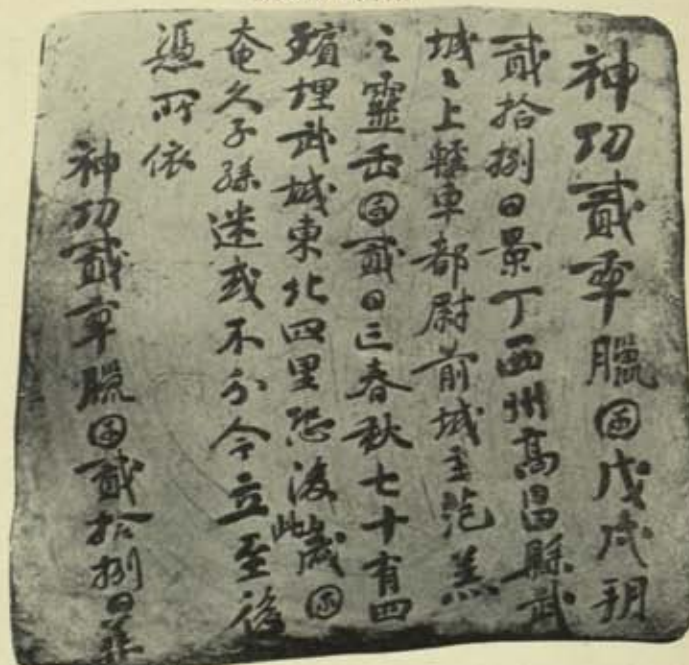 神功貳𠡦臘囝戊戌朔
貳拾捌日景丁西州高昌縣武
城〻上輕車都尉前城主范羔
之靈𠙺囝貳日亡春秋七十有四
殯埋武城東北四里恐後此歲囝
奄久子孫迷或不分今立至後
憑所依
神功貳𠡦臘囝貳拾捌日葬